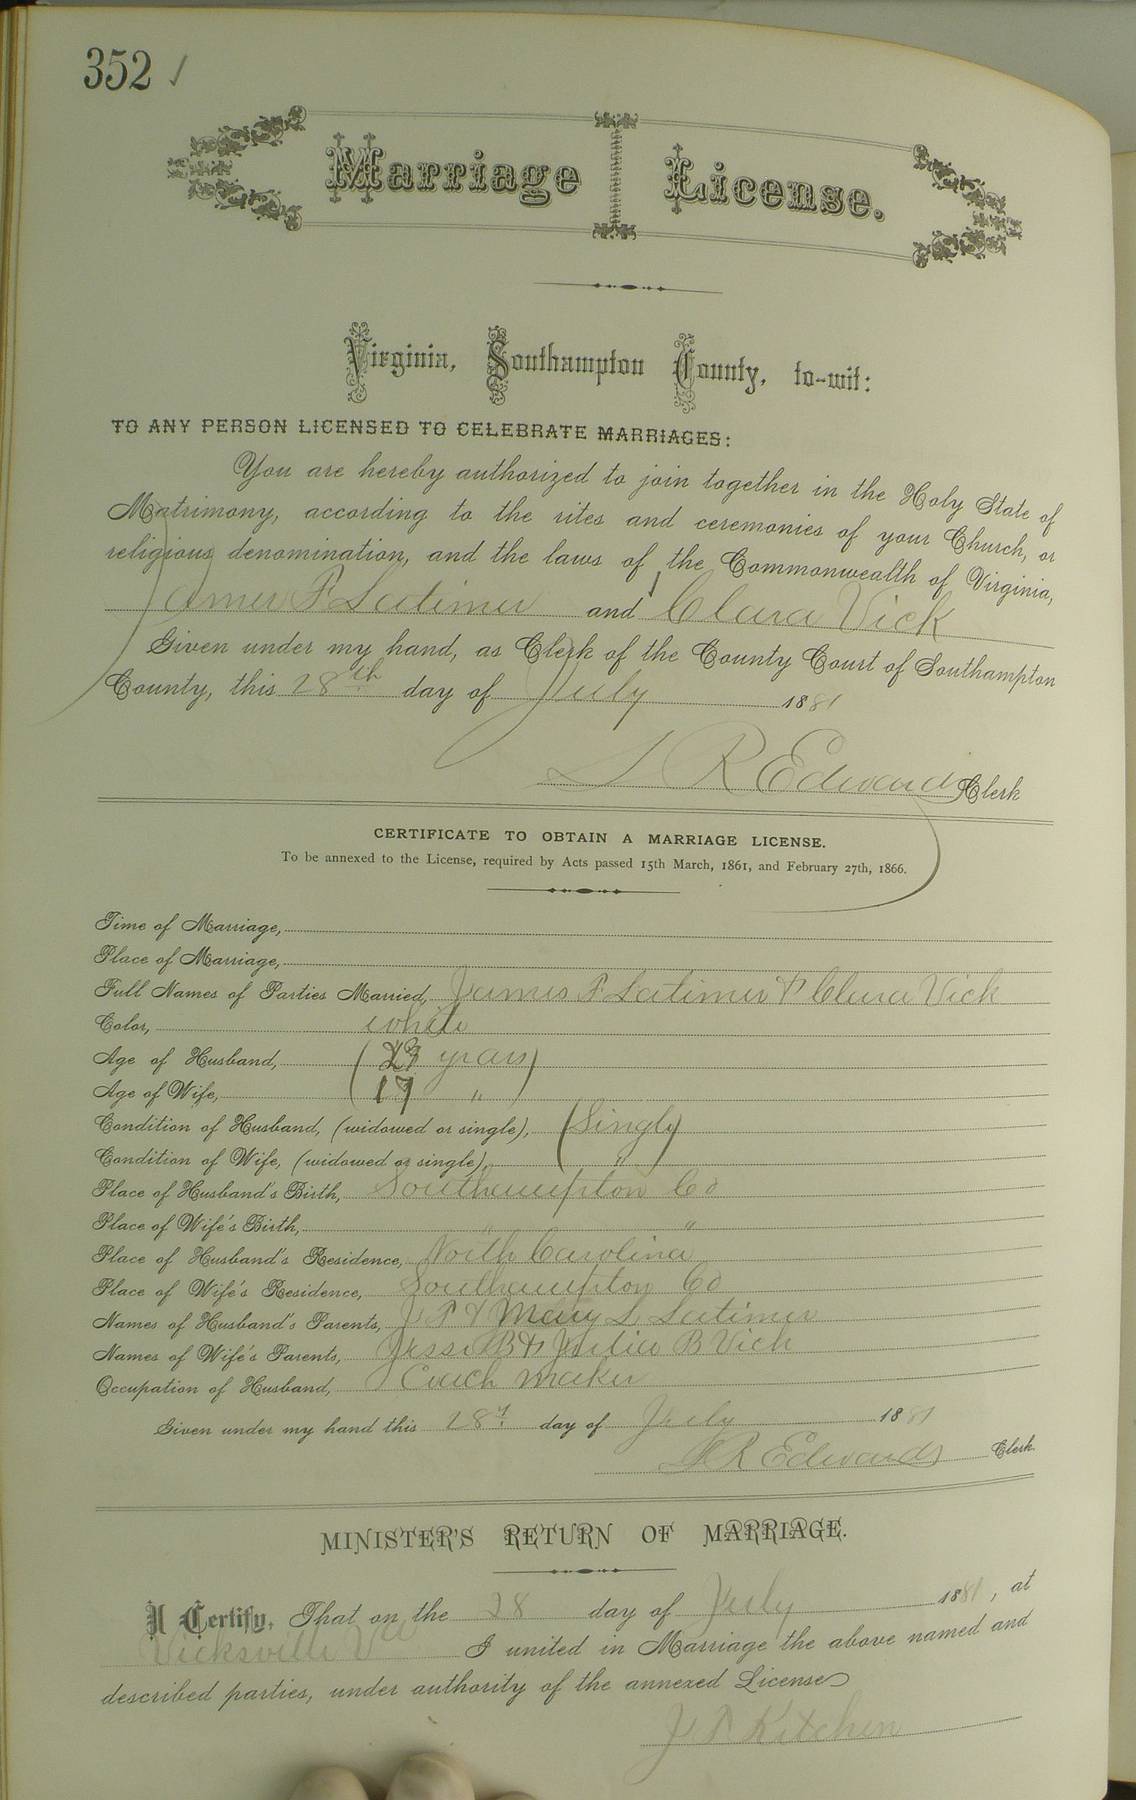 352
Marriage License.
Virginia, Southampton County, to-wit:
TO ANY PERSON LICENSED TO CELEBRATE MARRIAGES:
You are hereby authorized to join together in the Holy State of
Matrimony, according to the rites and ceremonies of your Church, or
religious denomination, and the laws of the Commonwealth of Virginia,
James P Latimer and Clara Vick
Given under my hand, as Clerk of the County Court of Southampton
County, this 28th day of July 1881
L R Edwards Clerk
CERTIFICATE TO OBTAIN A MARRIAGE LICENSE.
To be annexed to the License, required by Acts passed 15th March, 1861, and February 27th, 1866.
Time of Marriage,
Place of Marriage,
Full Names of Parties Married, James P Latimer & Clara Vick
Color, white
Age of Husband, (23 years)
Age of Wife, 17 "
Condition of Husband, (widowed or single), (Single)
Condition of Wife, (widowed or single), "
Place of Husband's Birth, Southampton Co
Place of Wife's Birth, " "
Place of Husband's Residence, North Carolina
Place of Wife's Residence, Southampton Co
Names of Husband's Parents, J P & Mary L Latimer
Names of Wife's Parents, Jesse B & Julia B Vick
Occupation of Husband, Coach maker
Given under my hand this 28th day of July 1881
L R Edwards Clerk
MINISTER'S RETURN OF MARRIAGE.
I Certify, That on the 28 day of July 1881, at
Vicksville Va I united in Marriage the above named and
described parties, under authority of the annexed License
J P Kitchen